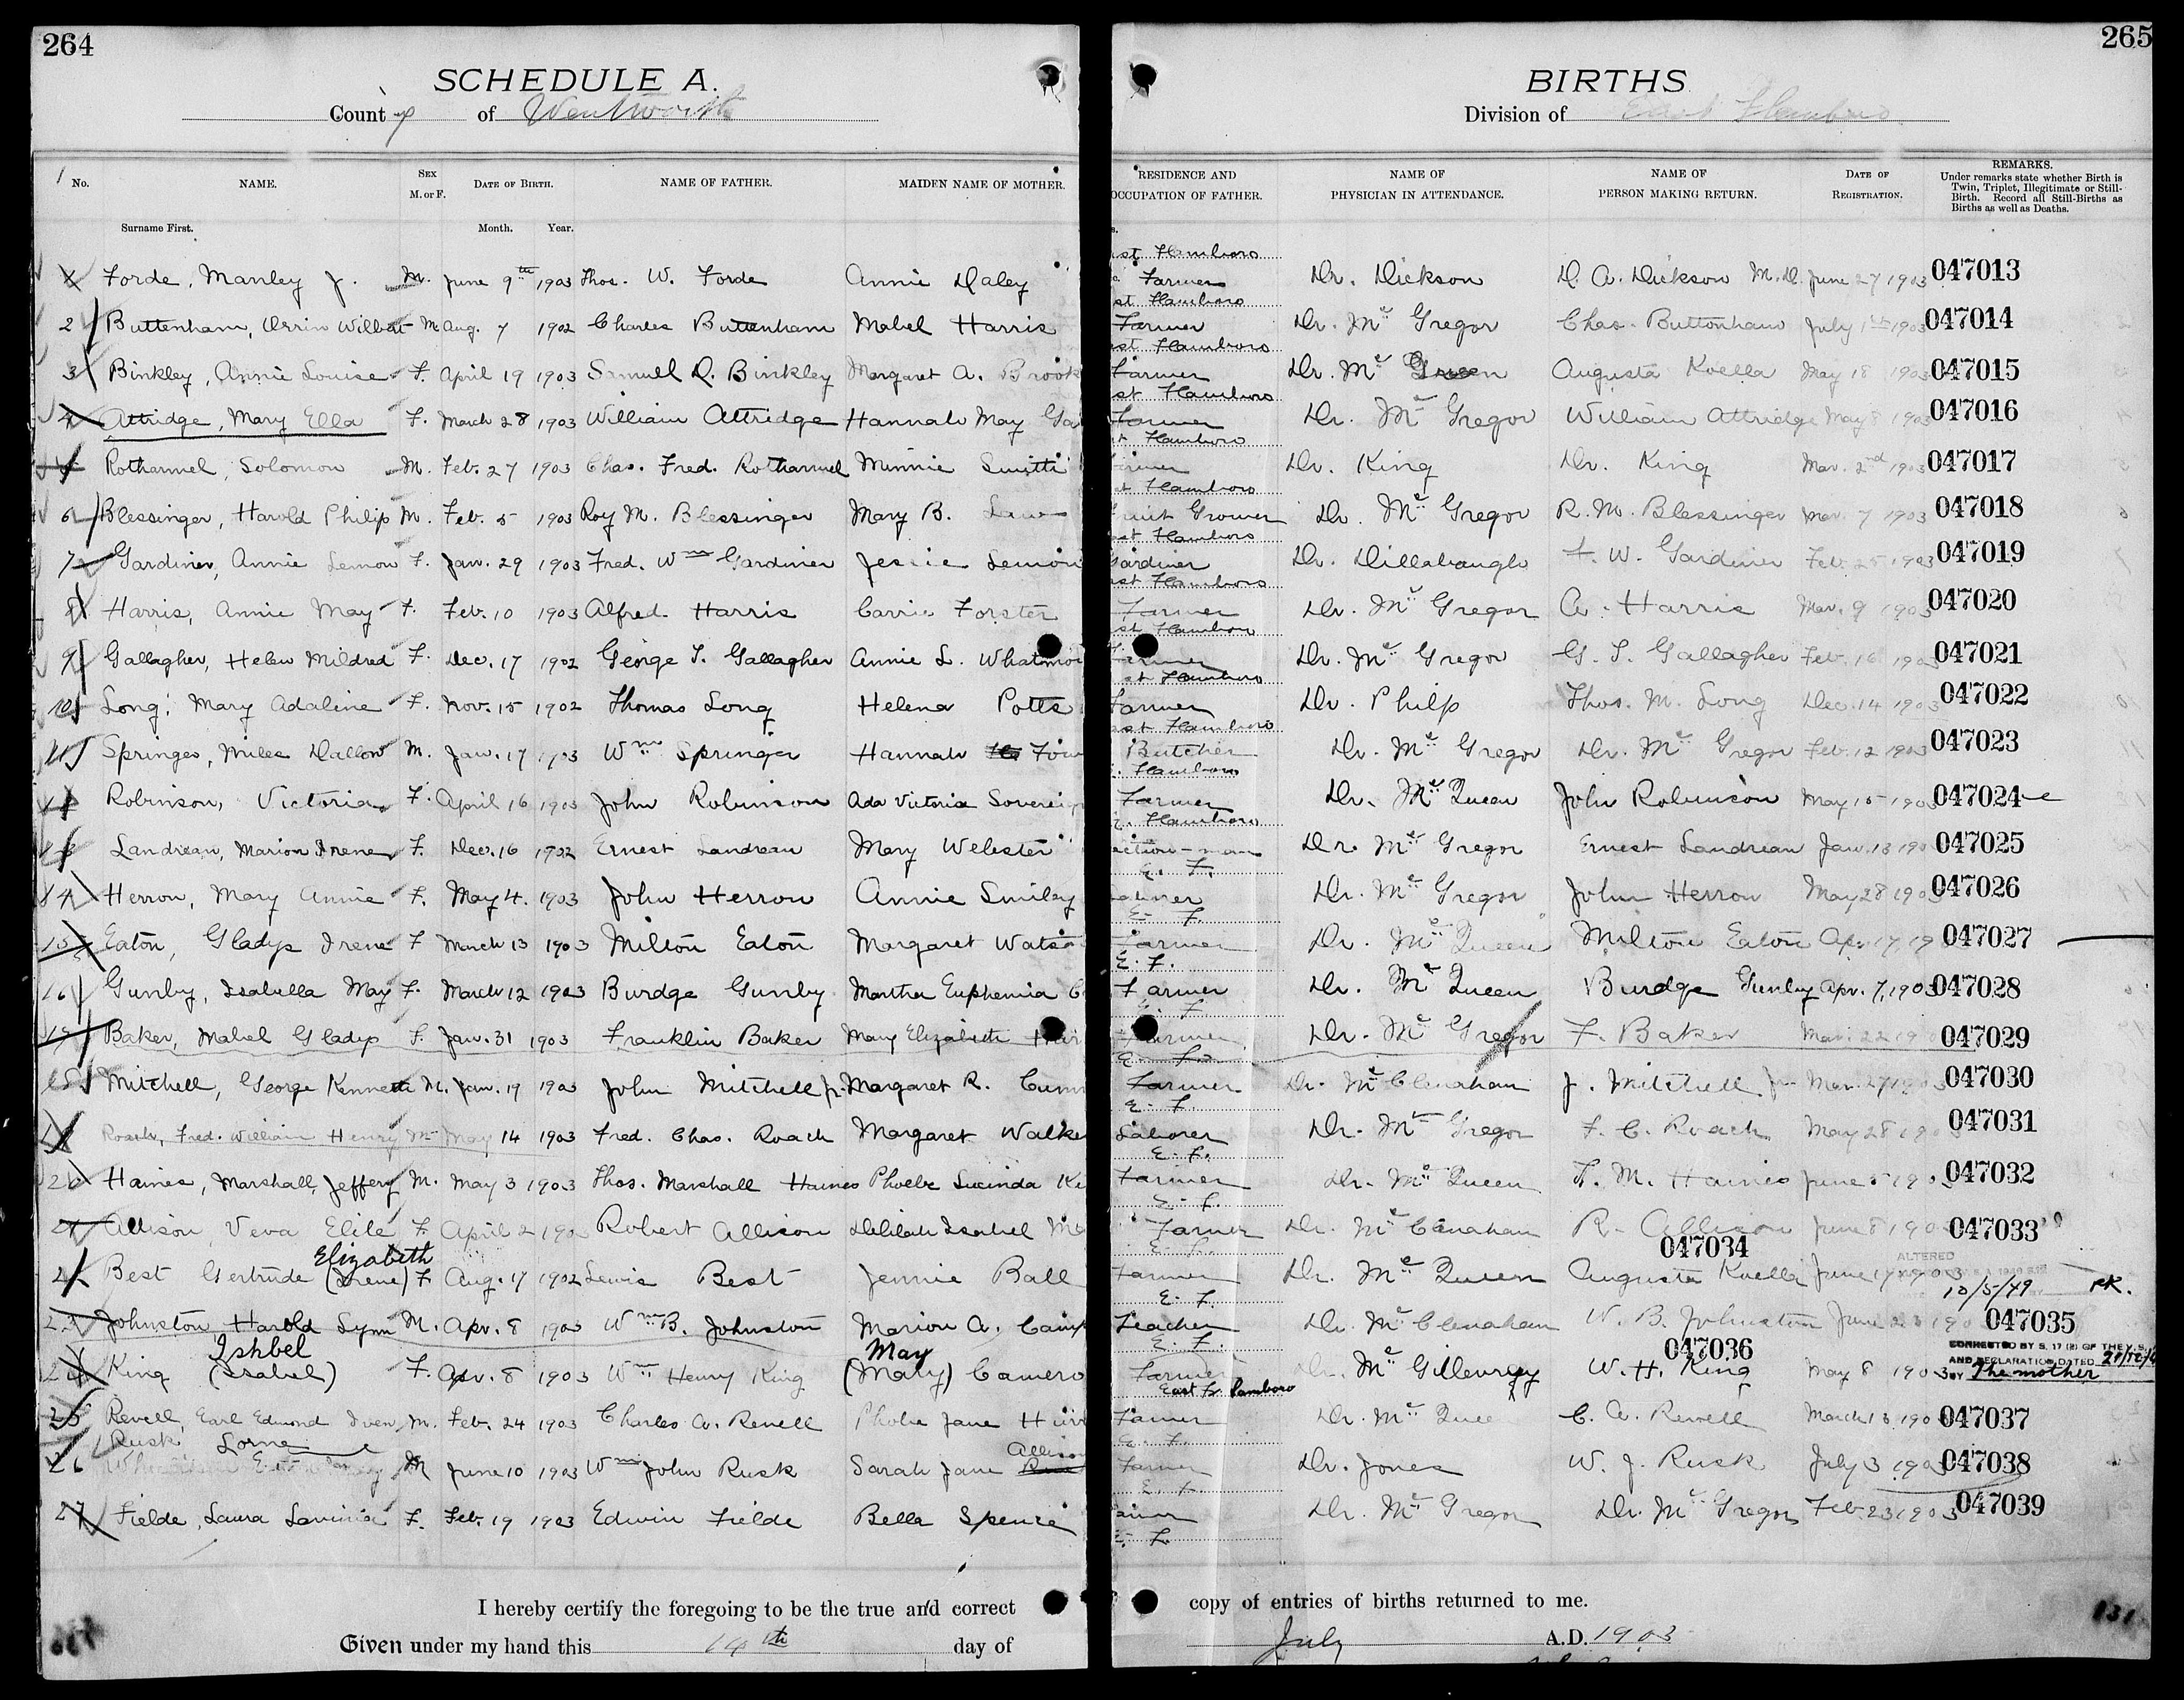 264
SCHEDULE A.
County of Wentworth
No. NAME. SEX M. or F. DATE OF BIRTH. NAME OF FATHER. MAIDEN NAME OF MOTHER.
Surname First. Month. Year.
1 Forde, Manley J. M. June 9th 1903 Thos. W. Forde Annie Daley
2 Buttenham, Orrin Wilbert M. Aug. 7 1902 Charles Buttenham Mabel Harris
3 Binkley, Annie Louise F. April 19 1903 Samuel D. Binkley Margaret A. Brook
4 Attridge, Mary Ella F. March 28 1903 William Attridge Hannah May Ga
5 Rotharmel, Solomon M. Feb. 27 1903 Chas. Fred. Rotharmel Minnie Smith
6 Blessinger, Harold Philip M. Feb. 5 1903 Roy M. Blessinger Mary B.
7 Gardiner, Annie Lemon F. Jan. 29 1903 Fred. Wm Gardiner Jessie Lemon
8 Harris, Annie May F. Feb. 10 1903 Alfred Harris Carrie Forster
9 Gallagher, Helen Mildred F. Dec. 17 1902 George T. Gallagher Annie L. Whatmo
10 Long, Mary Adaline F. Nov. 15 1902 Thomas Long Helena Potts
11 Springer, Miles Dallow M. Jan. 17 1903 Wm Springer Hannah
12 Robinson, Victoria F. April 16 1903 John Robinson Ada Victoria Sovereig
13 Landreau, Marion Irene F. Dec. 16 1902 Ernest Landreau Mary Webster
14 Herron, Mary Annie F. May 4. 1903 John Herron Annie Smiley
15 Eaton, Gladys Irene F March 13 1903 Milton Eaton Margaret Watso
16 Gunby, Isabella May F. March 12 1903 Burdge Gunby Martha Euphemia
17 Baker, Mabel Gladys F. Jan. 31 1903 Franklin Baker Mary Elizabeth
18 Mitchell, George Kenneth M. Jan. 19 1903 John Mitchell jr. Margaret R.
19 Roach, Fred. William Henry M May 14 1903 Fred. Chas. Roach Margaret Walke
20 Haines, Marshall Jeffery M. May 3 1903 Thos. Marshall Haines Phoebe Lucinda
21 Allison, Veva F. April 2 1903 Robert Allison Delilah Isabel
Elizabeth
22 Best Gertrude (Irene) F. Aug. 17 1902 Lewis Best Jennie Ball
23 Johnston Harold Lynn M. Apr. 8 1903 Wm B. Johnston Marion A. Camp
Ishbel May
24 King (Isabel) F. Apr. 8 1903 Wm Henry King (Mary) Camero
25 Revell, Earl Edmond M. Feb. 24 1903 Charles A. Revell Phobe Jane
Rusk Lorne Allison
26 M June 10 1903 Wm John Rusk Sarah Jane
27 Fielde, Laura Lavinia F. Feb. 19 1903 Edwin Fielde Bella Spence
I hereby certify the foregoing to be the true and correct
Given under my hand this 14th day of
265
BIRTHS
Division of East Flamboro
RESIDENCE AND OCCUPATION OF FATHER. NAME OF PHYSICIAN IN ATTENDANCE. NAME OF PERSON MAKING RETURN. DATE OF REGISTRATION. REMARKS.
Under remarks state whether Birth is
Twin, Triplet, Illegitimate or Still-
Birth. Record all Still-Births as
Births as well as Deaths.
st Flamboro
Farmer Dr. Dickson D. A. Dickson M.D. June 27 1903 047013
st Flamboro
Farmer Dr. Mc Gregor Chas. Buttenham July 1903 047014
st Flamboro
Farmer Dr. Mc Augusta Kvella May 18 1903 047015
st Flamboro
Farmer Dr. Mc Gregor William Attridge May 8 1903 047016
st Flamboro
Farmer Dr. King Dr. King Mar. 2nd 1903 047017
st Flamboro
Fruit Grower Dr. Mc Gregor R. M. Blessinger Mar. 7 1903 047018
st Flamboro
Gardiner Dr. Dillabaugh F. W. Gardiner Feb. 25 1903 047019
st Flamboro
Farmer Dr. Mc Gregor A. Harris Mar. 9 1903 047020
st Flamboro
Farmer Dr. Mc Gregor G. T. Gallagher Feb. 16 1903 047021
st Flamboro
Farmer Dr. Philp Thos. M. Long Dec. 14 1903 047022
st Flamboro
Butcher Dr. Mc Gregor Dr. Mc Gregor Feb. 12 1903 047023
Flamboro
Farmer Dr. Mc Queen John Robinson May 15 1903 047024
Flamboro
ection-man Dr. Mc Gregor Ernest Landreau Jan. 13 190 047025
E. F.
Laborer Dr. Mc Gregor John Herron May 28 190 047026
E. F.
Farmer Dr. Mc Queen Milton Eaton Apr. 17 19 047027
E. F.
Farmer Dr. Mc Queen Burdge Gunby Apr. 7, 1903 047028
E. F.
Farmer Dr. Mc Gregor F. Baker Mar. 22 19 047029
E. F.
Farmer Dr. Mc Clenahan J. Mitchell Jr. Mar. 27 1903 047030
E. F.
Laborer Dr. Mc Gregor F. C. Roach May 28 19 047031
E. F.
Farmer Dr. Mc Queen T. M. Haines June 5 19 047032
E. F.
Farmer Dr. Mc Clenahan R. Allison June 8 190 047033
E. F. 047034 ALTERED
Farmer Dr. Mc Queen Augusta Kvella June 17 1903 10/5/49 RK.
E. F.
Teacher Dr. Mc Clenahan W. B. Johnston June 190 047035
E. F. 047036 CORRECTED BY S. 17 (2) OF THE V.S.
Farmer Mc W. H. King May 8 1903 AND DECLARATION DATED
East Flamboro BY The mother
Farmer Dr. Mc Quee C. A. Revell March 13 190 047037
E. F.
Farmer Dr. Jones W. J. Rusk July 3 1903 047038
E. F.
Dr. Mc Gregor Dr. Mc Gregor Feb. 23 1903 047039
E. F.
copy of entries of births returned to me.
July A.D. 1903